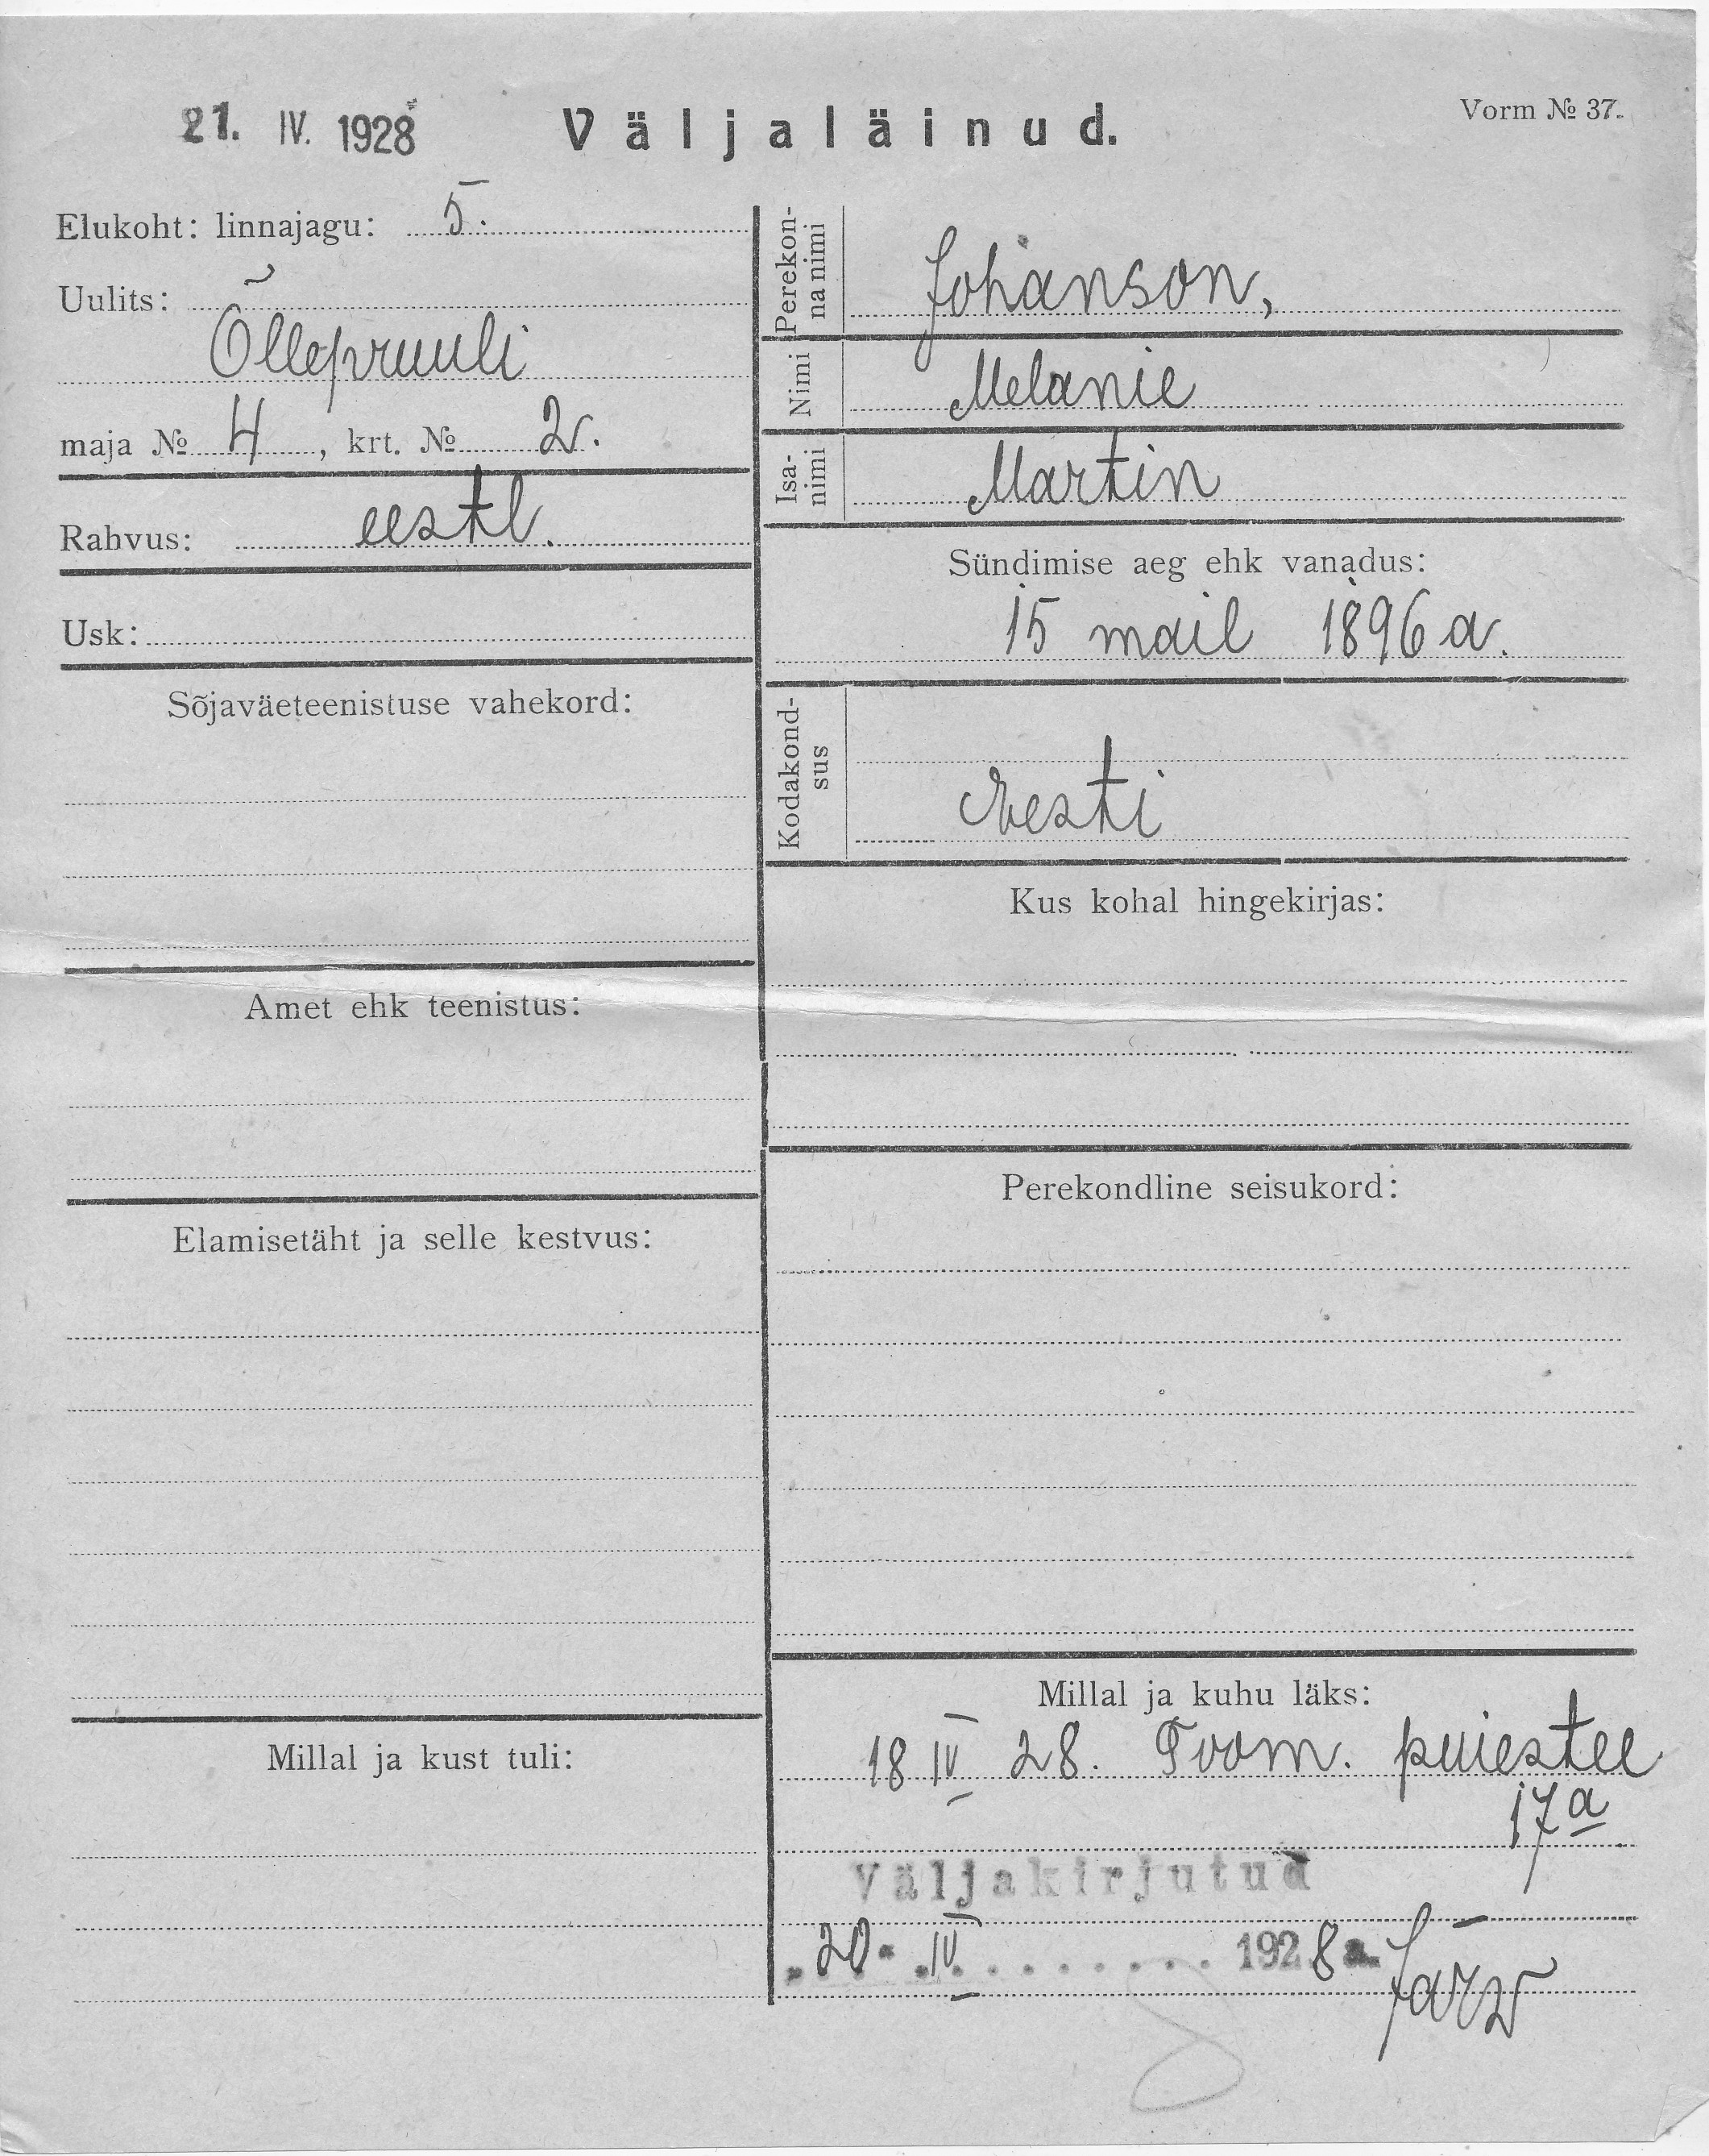 21. IV. 1928
Väljaläinud.
Vorm № 37.
Elukoht: linnajagu: 5.
Uulits:
Õllepruuli
maja № 4, krt. № 2.
Rahvus: eestl.
Usk:
Sõjaväeteenistuse vahekord:
Amet ehk teenistus:
Elamisetäht ja selle kestvus:
Millal ja kust tuli:
Perekon-
na nimi
Johanson,
Nimi
Melanie
Isa-
nimi
Martin
Sündimise aeg ehk vanadus:
15 mail 1896 a.
Kodakond-
sus
Eesti
Kus kohal hingekirjas:
Perekondline seisukord:
Millal ja kuhu läks:
18 IV 28. Toom. puiestee
17a
Väljakirjutud
20. IV 1928 a.
Järv